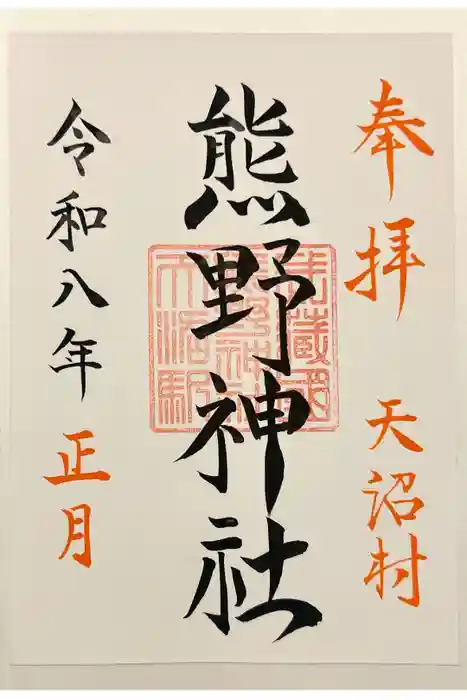 奉拝 天沼村
熊野神社
武蔵國
令和八年 正月